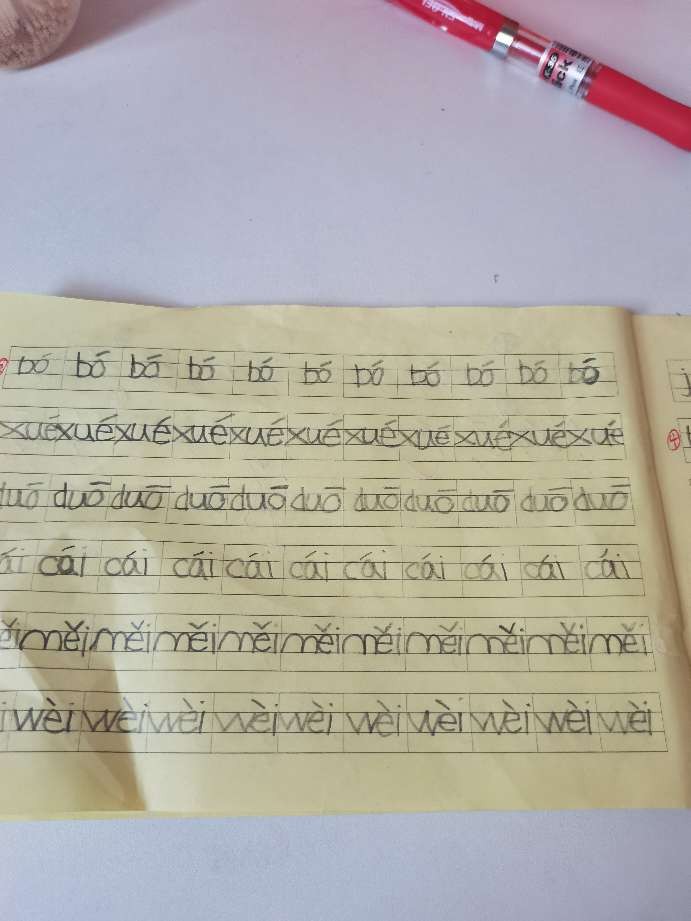 bó bó bó bó bó bó bó bó bó bó bó
xué xué xué xué xué xué xué xué xué xué xué
duō duō duō duō duō duō duō duō duō duō duō
cái cái cái cái cái cái cái cái cái cái
měi měi měi měi měi měi měi měi měi měi
wèi wèi wèi wèi wèi wèi wèi wèi wèi wèi